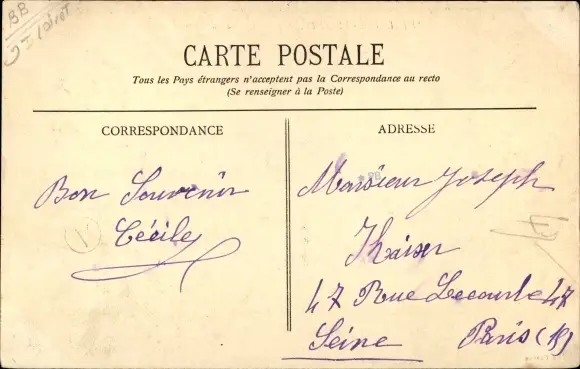 CARTE POSTALE
Tous les Pays étrangers n'acceptent pas la Correspondance au recto
(Se renseigner à la Poste)
CORRESPONDANCE
ADRESSE
Bon Souvenir
Cécile
Monsieur Joseph
Kaiser
47 Rue Lecourbe 47
Seine Paris (15)
BB